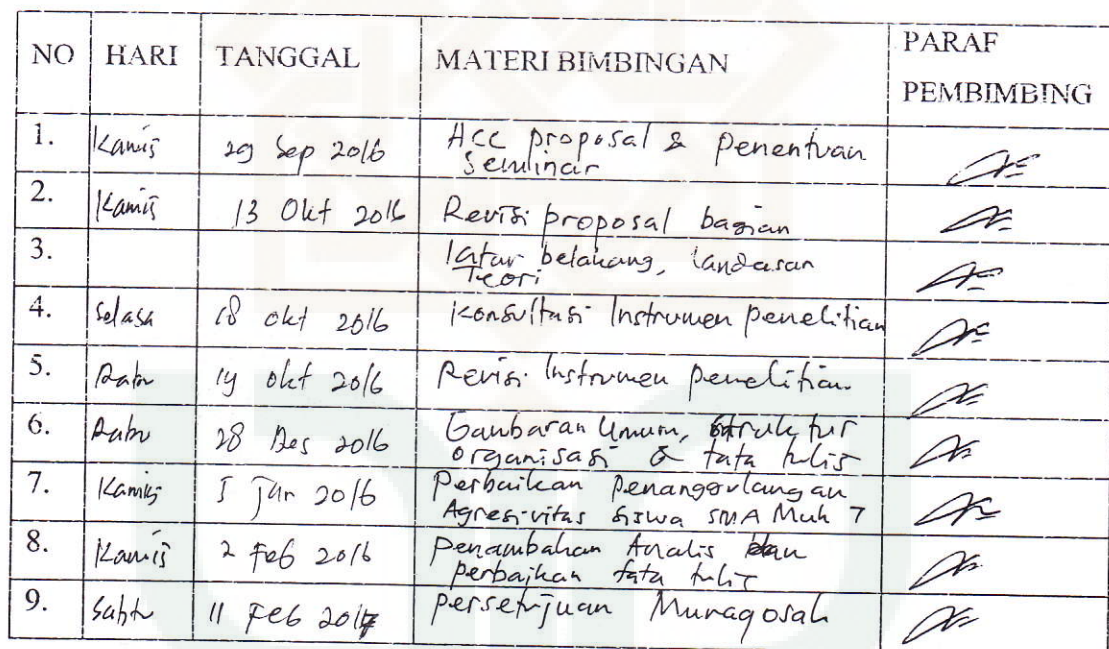 NO HARI TANGGAL MATERI BIMBINGAN PARAF PEMBIMBING
1. Kamis 29 Sep 2016 Acc proposal & penentuan
seminar
2. Kamis 13 Okt 2016 Revisi proposal bagian
3. latar belakang, landasan
Teori
4. Selasa 18 okt 2016 Konsultasi Instrumen penelitian
5. Rabu 19 okt 2016 Revisi Instrumen penelitian
6. Rabu 28 Des 2016 Gambaran Umum, Struktur
organisasi & tata tulis
7. Kamis 5 Jan 2016 Perbaikan Penanggulangan
Agresivitas siswa SMA Muh 7
8. Kamis 2 Feb 2016 penambahan Analis dan
perbaikan tata tulis
9. Sabtu 11 Feb 2017 persetujuan Munaqosah